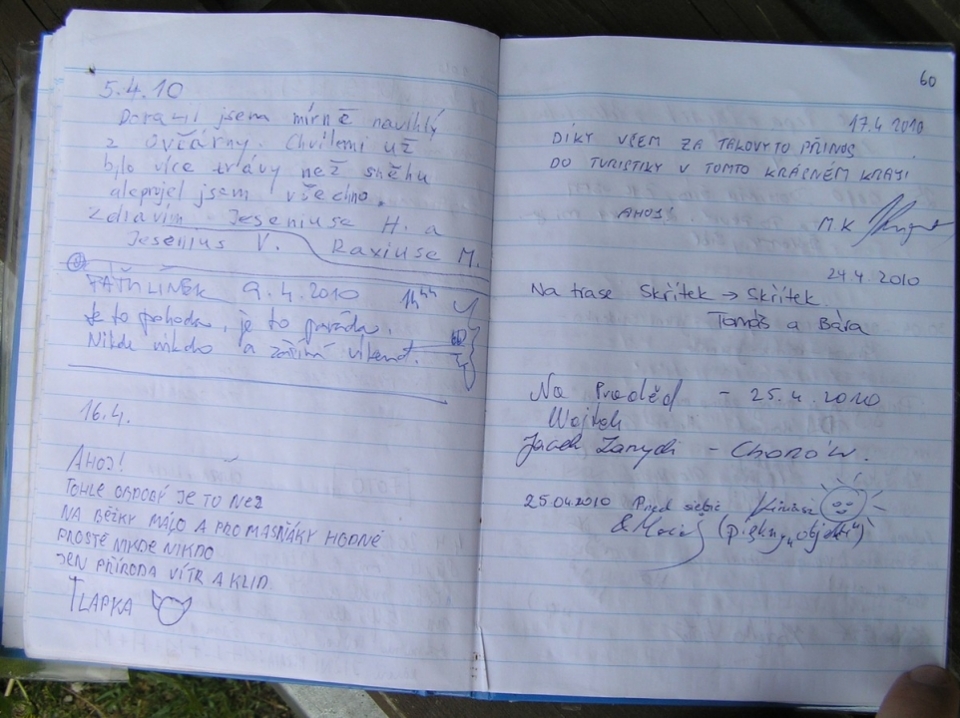 5.4.10
Dorazil jsem mírně navihlý
z Ovčárny. Chvílemi už
bylo více trávy než sněhu
aleprojel jsem všechno.
Zdravím Jeseniuse H. a
Jesenius V. Raxiuse M.
9.4.2010 14⁴⁴
Je to pohoda, je to paráda.
Nikde nikdo a zážimá víkend.
16.4.
AHOJ!
TOHLE OBDOBÍ JE TO NEJ
NA BĚŽKY MÁLO A PRO MASŇÁKY HODNĚ
PROSTĚ NIKDE NIKDO
JEN PŘÍRODA VÍTR A KLID.
TLAPKA
60
17.4 2010
DÍKY VŠEM ZA TAKOVÝTO PŘÍNOS
DO TURISTIKY V TOMTO KRÁSNÉM KRAJI
AHOJ!
MK
24.4.2010
Na trase Skřítek → Skřítek
Tomáš a Bára
Na Praděd - 25.4.2010
Wojtek
Jacek - Chorzów.
25.04.2010 Przed siebie
& Maciej (piękny „objekt")